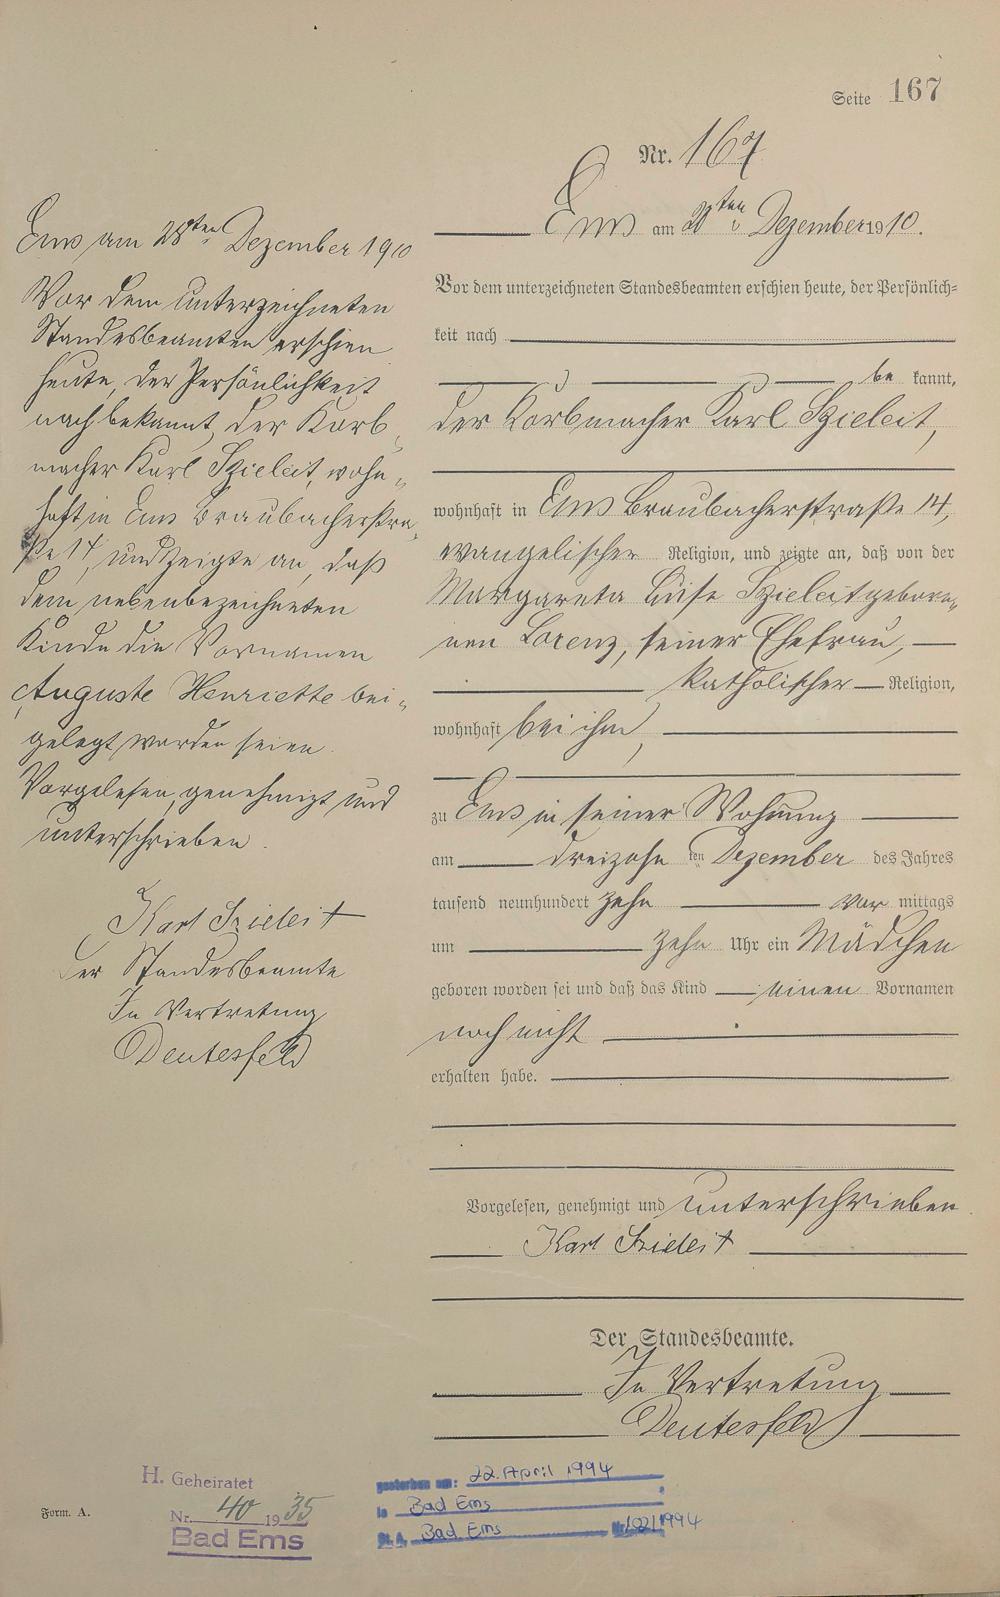 Seite 167
Nr. 167
Ems am ten Dezember 1910.
Vor dem unterzeichneten Standesbeamten erschien heute, der Persönlich=
keit nach
be kannt,
der Korbmacher Karl Szieleit,
wohnhaft in Ems Braubacherstraße 14,
evangelischer Religion, und zeigte an, daß von der
Margareta Luise Szieleit gebore-
nen Lorenz, seiner Ehefrau,
katholischer Religion,
wohnhaft bei ihm,
zu Ems in seiner Wohnung
am dreizehn ten Dezember des Jahres
tausend neunhundert zehn vor mittags
um zehn Uhr ein Mädchen
geboren worden sei und daß das Kind einen Vornamen
noch nicht
erhalten habe.
Vorgelesen, genehmigt und unterschrieben
Karl Szieleit
Der Standesbeamte.
In Vertretung
Deutesfeld
Ems am 28ten Dezember 1910
Vor dem unterzeichneten
Standesbeamten erschien
heute, der Persönlichkeit
nach bekannt, der Korb-
macher Karl Szieleit, wohn-
haft in Ems Braubacherstra-
ße 14, und zeigte an, daß
dem nebenbezeichneten
Kinde die Vornamen
Auguste Henriette bei-
gelegt worden seien.
Vorgelesen, genehmigt und
unterschrieben.
Karl Szieleit
Der Standesbeamte
In Vertretung
Deutesfeld
Form. A.
H. Geheiratet
Nr. 40 1935
Bad Ems
gestorben am: 22. April 1994
in Bad Ems
St. A. Bad Ems Nr. 102/1994